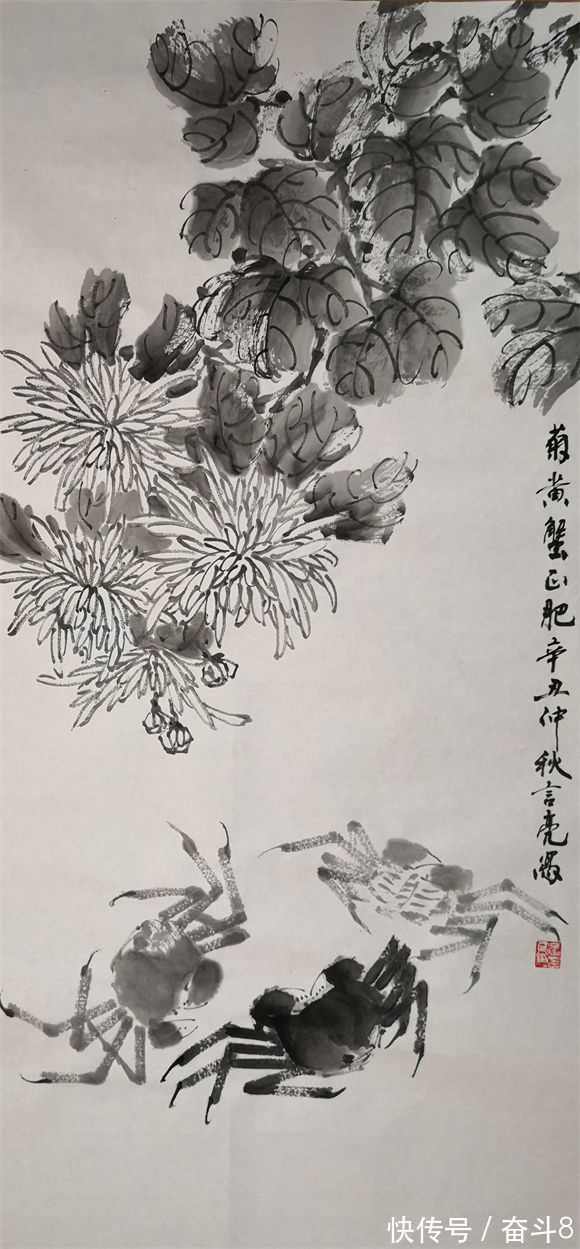 菊黄蟹正肥辛丑仲秋言亮写
快传号 / 奋斗8